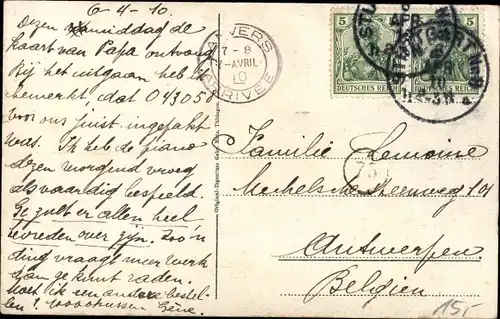 6-4-10
Dezen namiddag de
kaart van Papa ontvang
Bij het uitgaan heb ik
bemerkt, dat 043050
voor ons juist ingepakt
was. Ik heb de piano
dezen morgend vroeg
als vaardig bespeeld.
Ge zult er allen heel
tevreden over zijn. Zoo'n
ding vraagt meer werk
dan ge kunt raden.
Moet ik een andere bestel-
len? 10000 kussen Gène.
ANVERS
7-8
7-AVRIL
10
ARRIVÉE
5 5
DEUTSCHES REICH DEUTSCHES REICH
STUTTGART
Familie Lemoine
Mechelsche Steenweg 101
Antwerpen.
Belgien
15,-